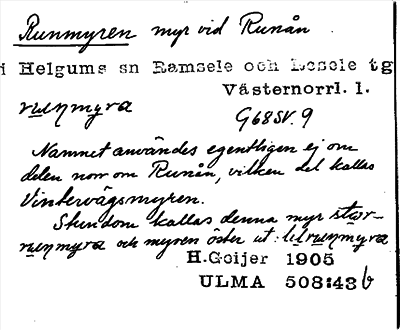 Runmyren myr vid Runån
i Helgums sn Ramsele och Resele tg
Västernorrl. l.
runmyra
G68SV.9
Namnet användes egentligen ej om
delen norr om Runån, vilken del kallas
Vintervägsmyren.
Stundom kallas denna myr stor-
runmyra och myren öster ut: lilrunmyra
H.Geijer 1905
ULMA 508:43b